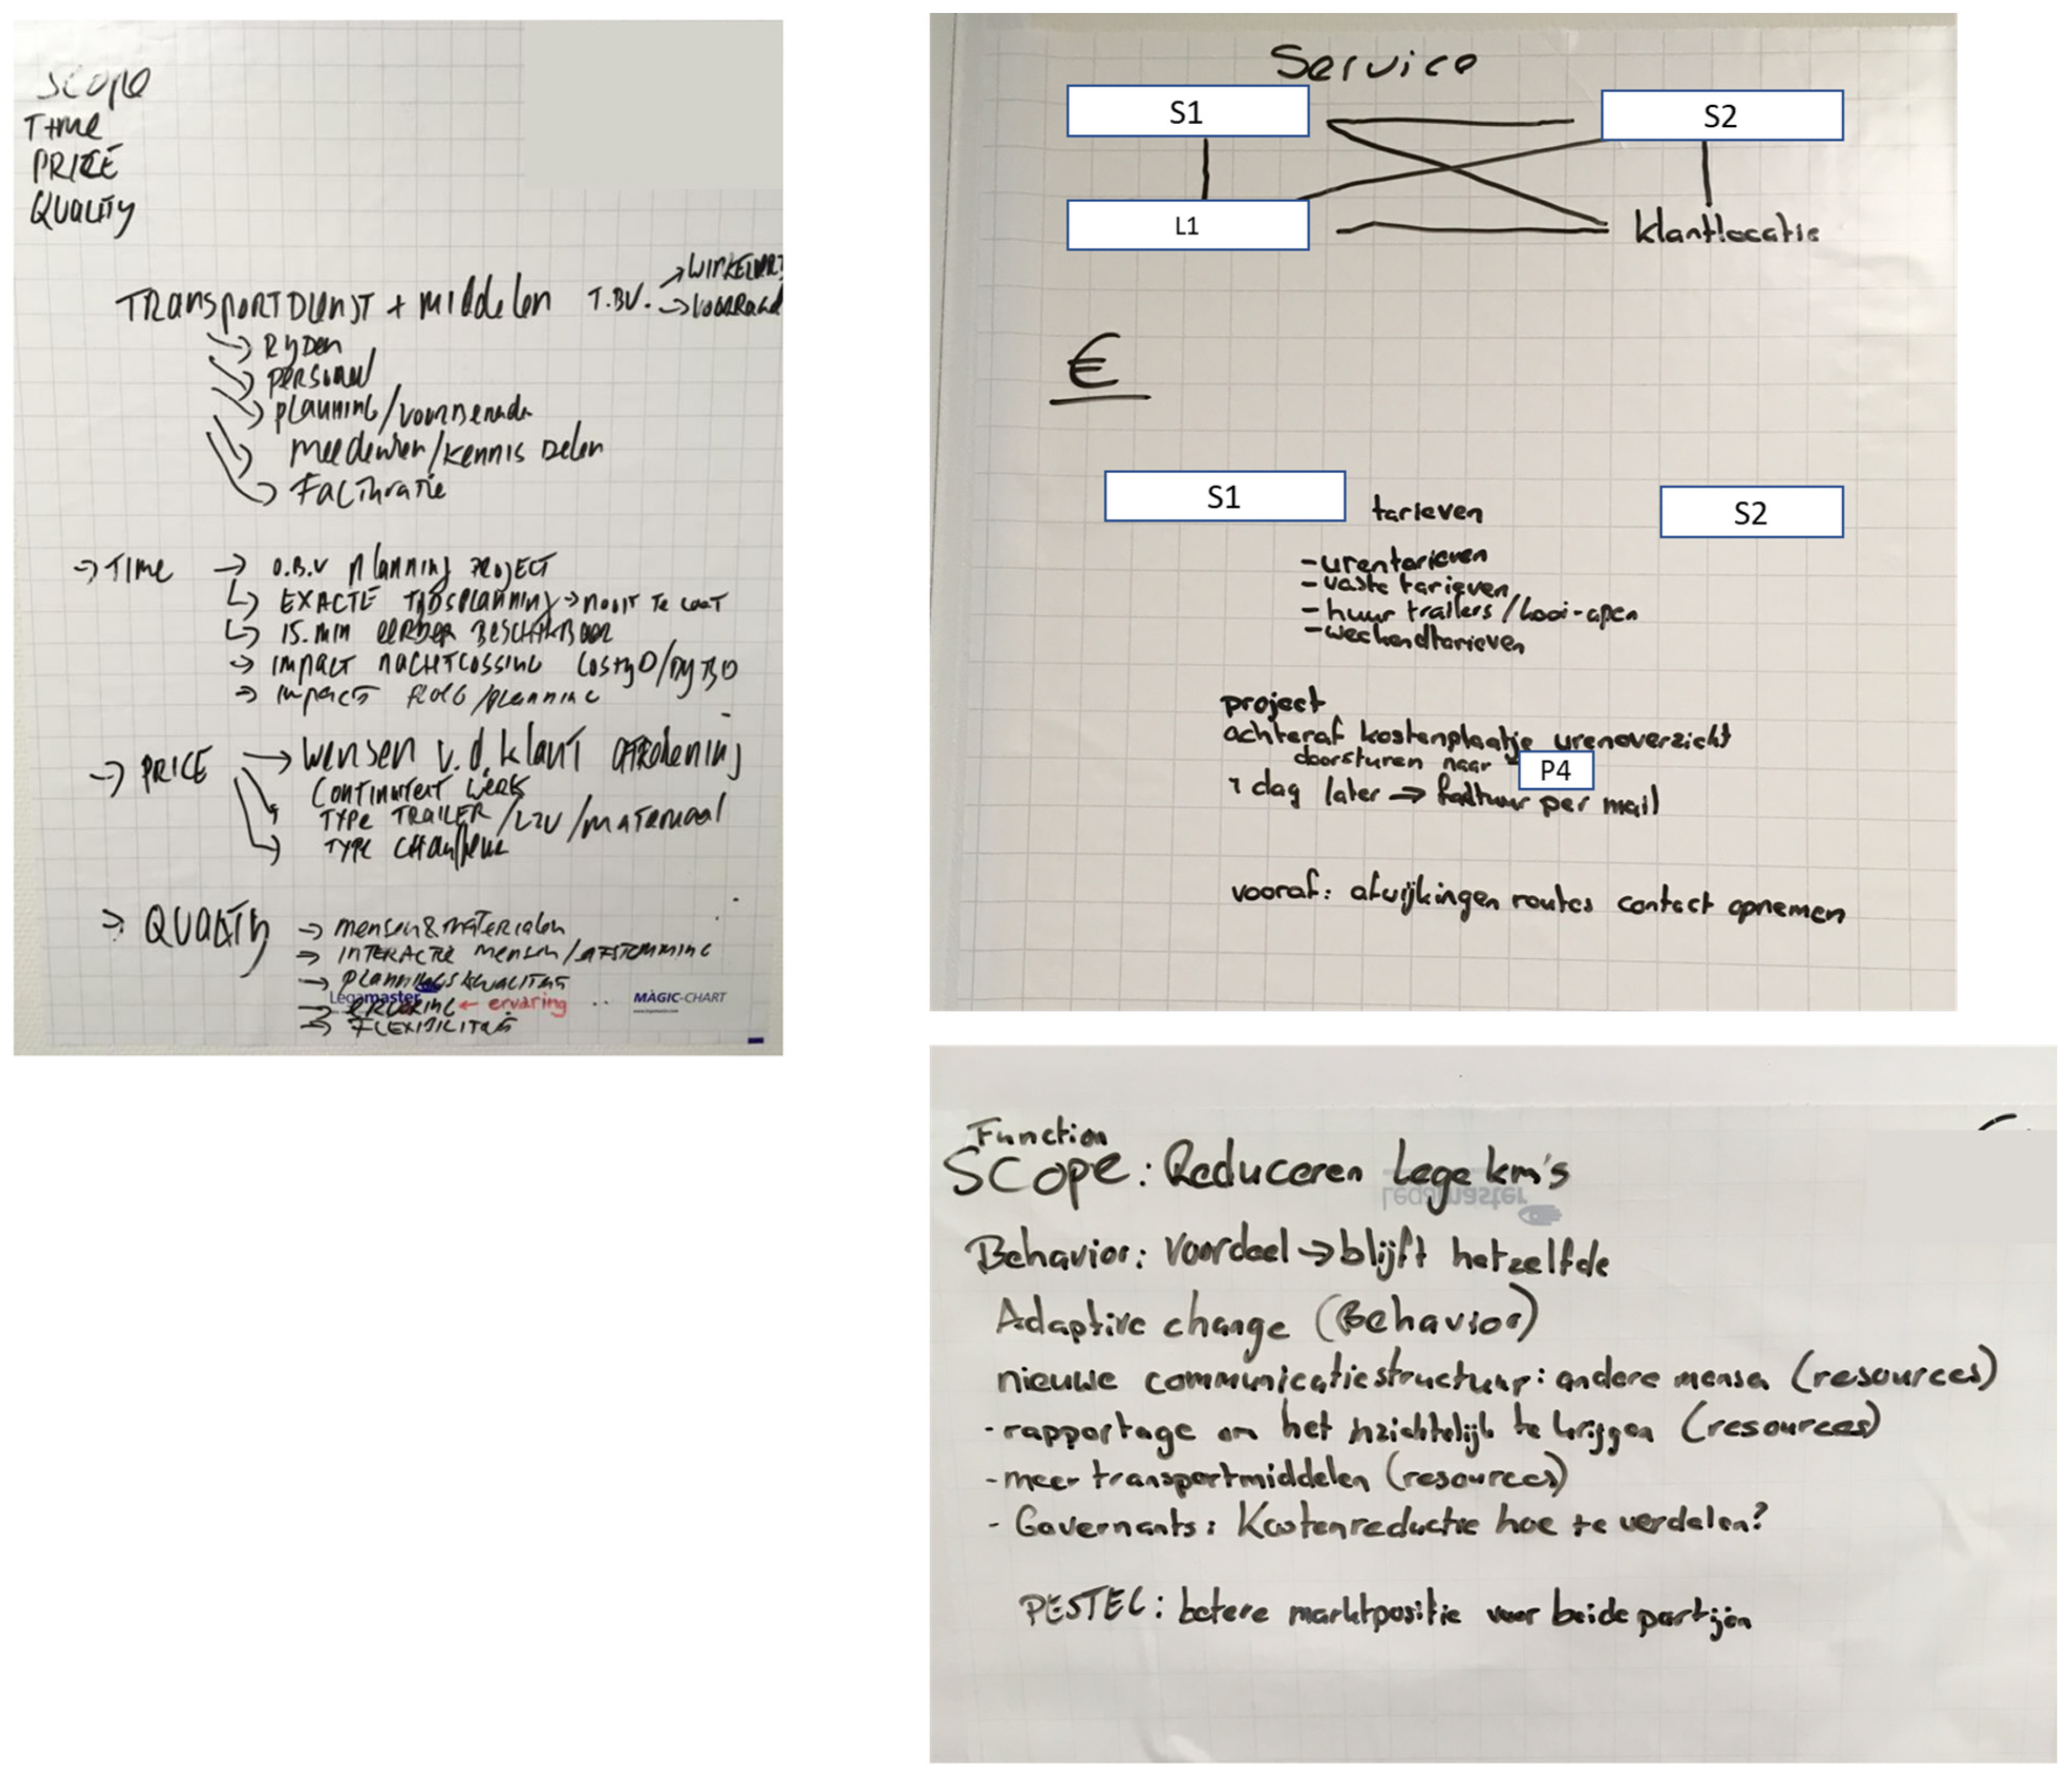 Scope
Time
PRICE
QUALITY
TRANSPORTDIENST + middelen T.B.V. → WINKEL → VOORRAAD
→ RyDen
→ Personeel
→ planning/voorbereide
meedenken/kennis Delen
→ Facturatie
→ TIME → O.B.V planning PROJECT
EXACTE TIJDSPLANNING → nooit Te Laat
15.min eerder BESCHIKBAAR
→ IMPACT NACHTLOSSING
→ impact /planning
→ PRICE → Wensen v.d. klant
Continuiteit Werk
TYPE TRAILER/LZV/materiaal
TYPE Chauffeur
→ QUALITY → mensen&materialen
→ INTERACTIE mensen/AFSTEMMING
→ PLANNINGSKWALITEIT
→ ← ervaring
→ FLEXIBILITEIT
Legamaster
MAGIC-CHART
www.legamaster.com
Service
S1 S2
L1 klantlocatie
€
S1 tarieven S2
- urentarieven
- vaste tarieven
- huur trailers/kooi-apen
- weekendtarieven
project
achteraf kostenplaatje urenoverzicht
doorsturen naar P4
1 dag later → factuur per mail
vooraf: afwijkingen routes contact opnemen
Function
SCOPE: Reduceren Lege km's
Legamaster
Behavior: Voordeel → blijft hetzelfde
Adaptive change (Behavior)
nieuwe communicatiestructuur: andere mensen (resources)
- rapportage om het inzichtelijk te krijgen (resources)
- meer transportmiddelen (resources)
- Governants: Kostenreductie hoe te verdelen?
PESTEL: betere marktpositie voor beide partijen